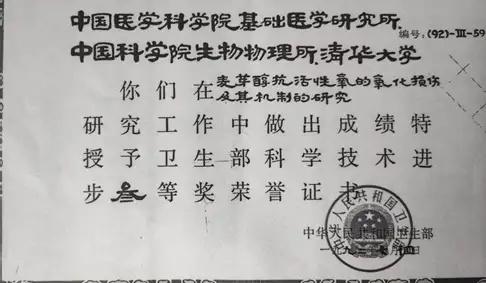 中国医学科学院基础医学研究所
编号:(92)-III-59
中国科学院生物物理所.清华大学
你们在麦芽醇抗活性氧的氧化损伤
及其机制的研究
研究工作中做出成绩特
授予卫生部科学技术进
步叁等奖荣誉证书
中华人民共和国卫生部
中华人民共和国卫生部
一九九二